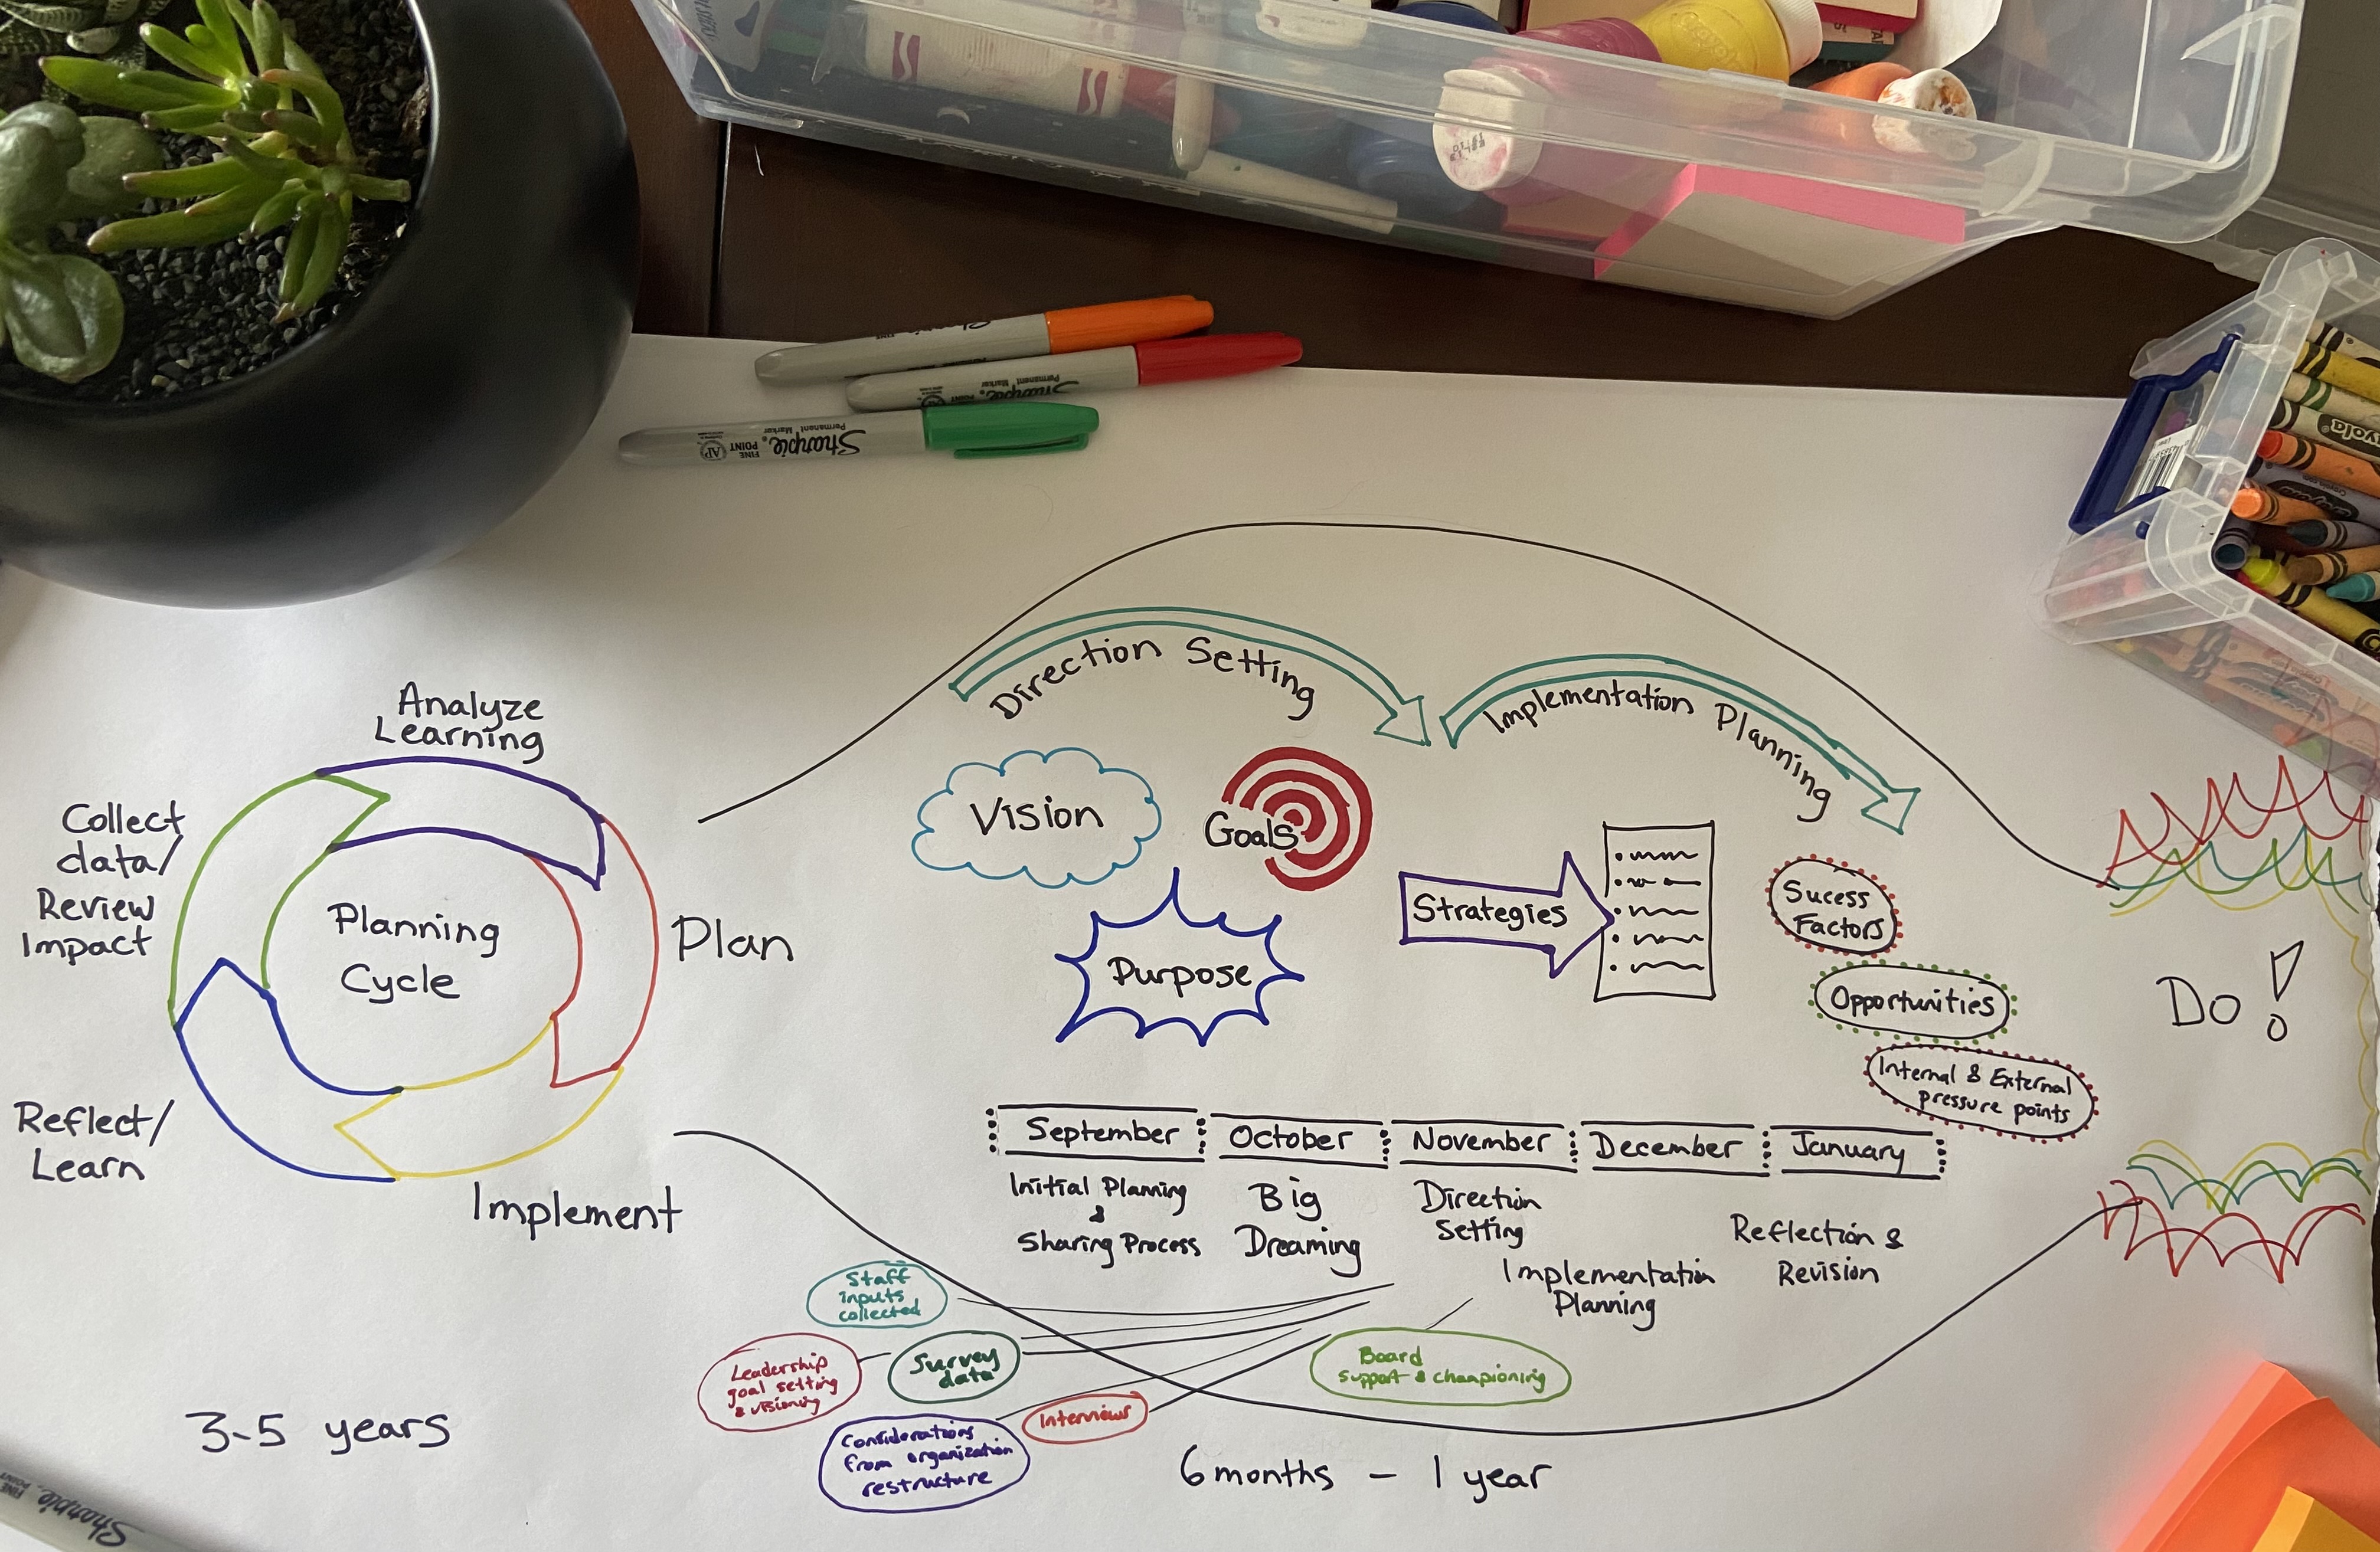 Sharpie
FINE POINT
Permanent Marker
Sharpie
Permanent Marker
FINE
POINT
AP
Direction Setting
Implementation Planning
Analyze
Learning
Collect
data/
Review
Impact
Planning
Cycle
Plan
Reflect/
Learn
Implement
3-5 years
Vision
Goals
Purpose
Strategies
Sucess
Factors
Opportunities
Internal & External
pressure points
Do!
September
October
November
December
January
Initial Planning
&
Sharing Process
Big
Dreaming
Direction
Setting
Implementation
Planning
Reflection &
Revision
Staff
inputs
collected
Leadership
goal setting
& visioning
Survey
data
Considerations
from organization
restructure
Interviews
Board
support & championing
6 months - 1 year
Sharpie
FINE
POINT